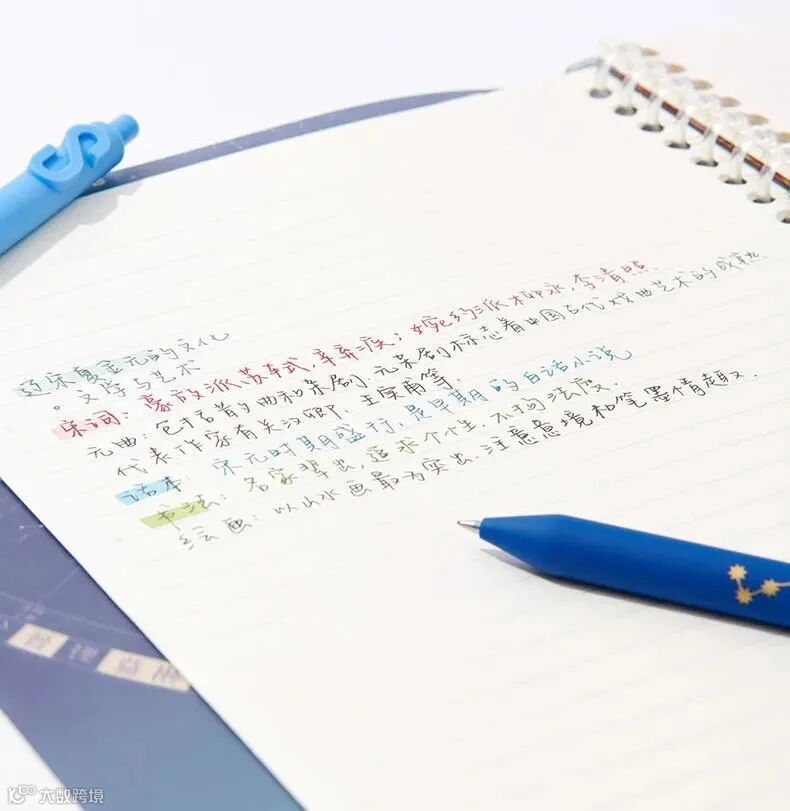 辽宋夏金元的文化
。文学与艺术
宋词：豪放派苏轼,辛弃疾；婉约派柳永,李清照
元曲：包括散曲和杂剧.元杂剧标志着中国古代戏曲艺术的成熟
代表作家有关汉卿、王实甫等.
话本：宋元时期盛行,是早期的白话小说
书法：名家辈出,追求个性.不拘法度.
绘画：以山水画最为突出.注意意境和笔墨情趣.
大数跨境